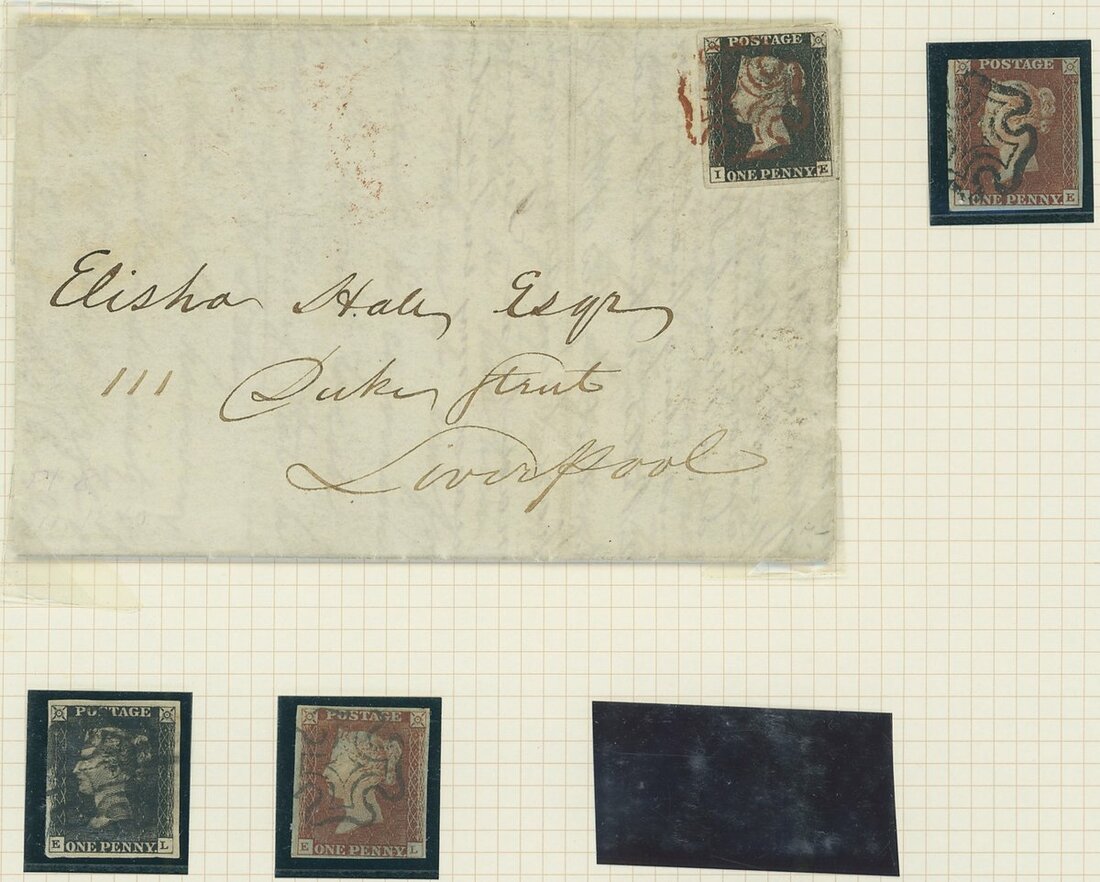 POSTAGE
I ONE PENNY E
POSTAGE
I ONE PENNY E
Elisha Hale Esqr
111 Duke Street
Liverpool
POSTAGE
E ONE PENNY L
POSTAGE
E ONE PENNY L